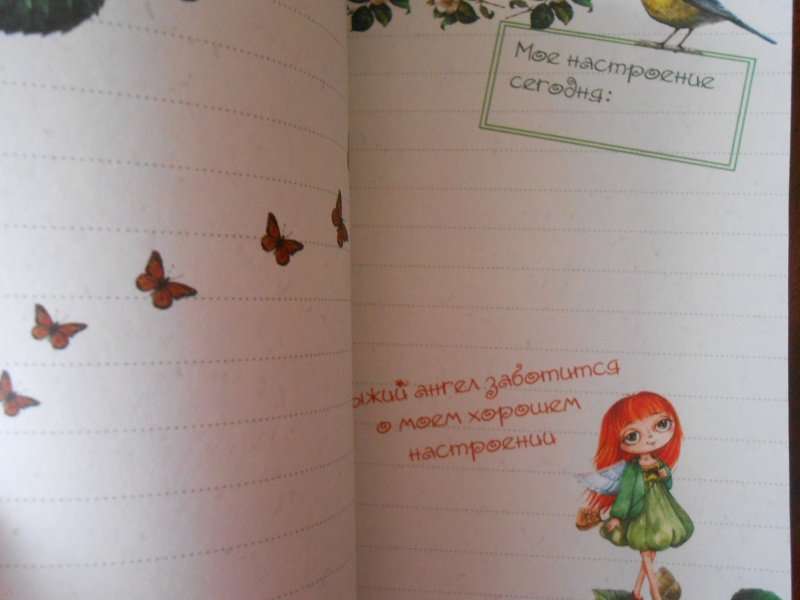 Мое настроение
сегодня:
ыжий ангел заботится
о моем хорошем
настроении